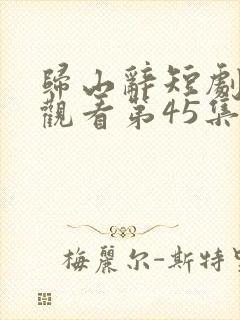 歸山辭短劇
觀看第45集
梅麗尔-斯特